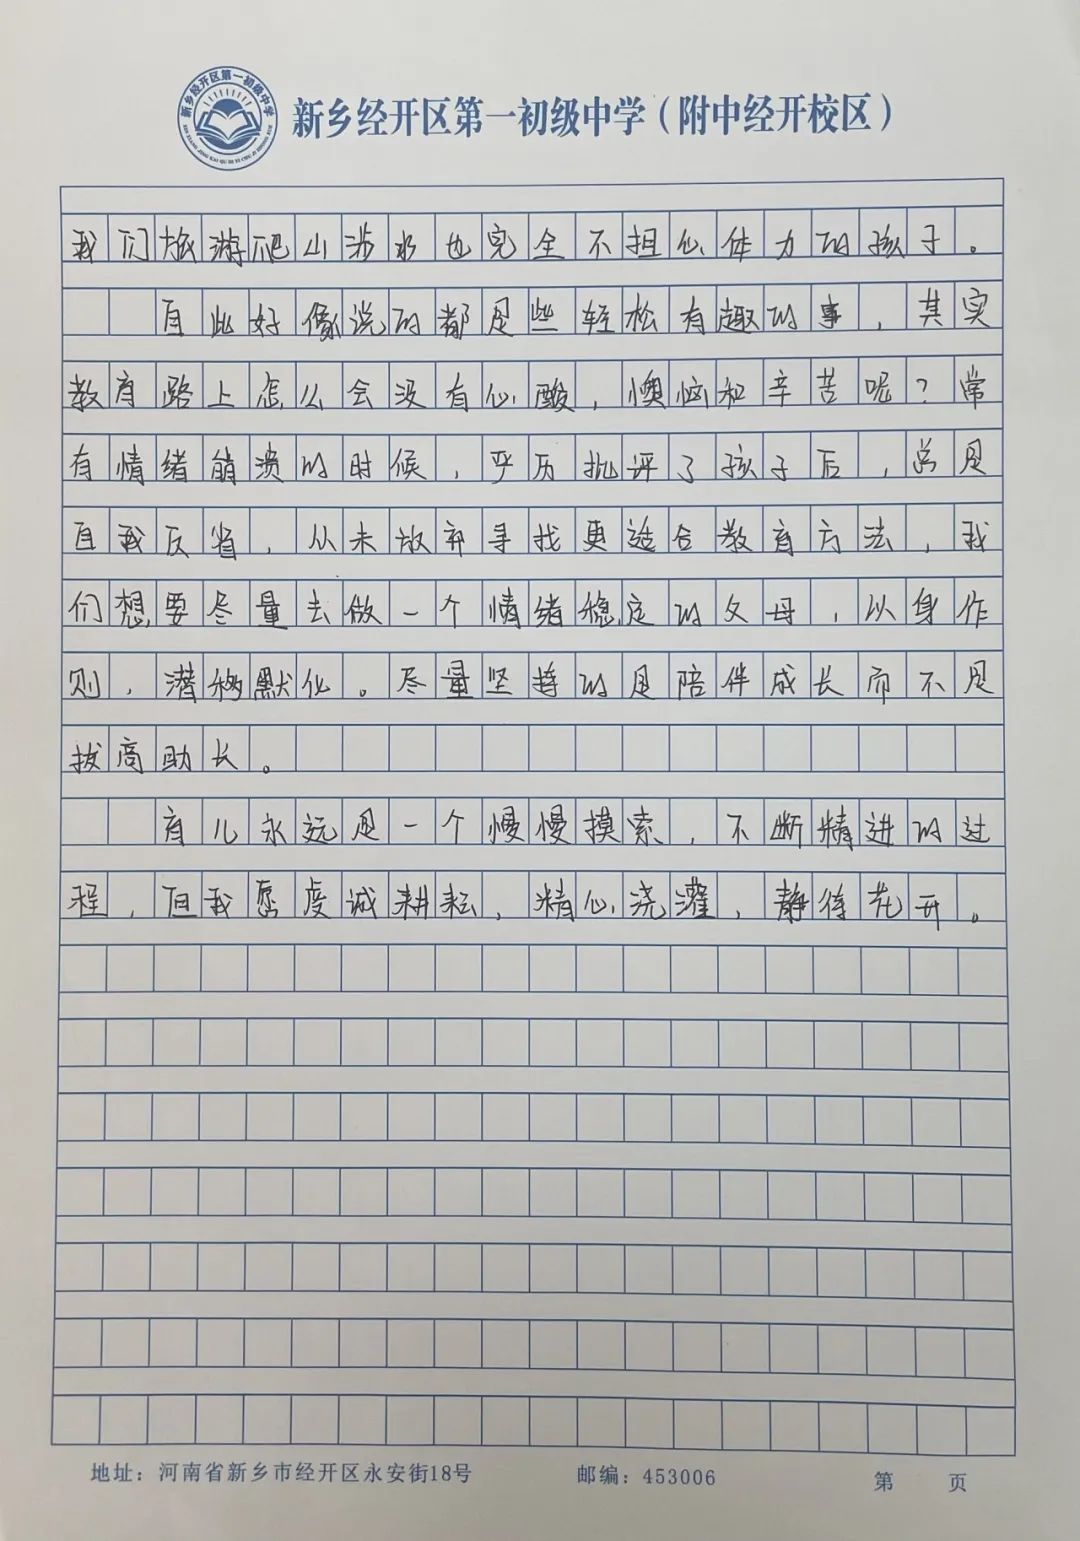 新乡经开区第一初级中学
新乡经开区第一初级中学（附中经开校区）
我们旅游爬山涉水也完全不担心体力的孩子。
自此好像说的都是些轻松有趣的事，其实
教育路上怎么会没有心酸，懊恼和辛苦呢？常
有情绪崩溃的时候，严厉批评了孩子后，总是
自我反省，从未放弃寻找更适合教育方法，我
们想要尽量去做一个情绪稳定的父母，以身作
则，潜移默化。尽量坚持的是陪伴成长而不是
拔高助长。
育儿永远是一个慢慢摸索，不断精进的过
程，但我愿虔诚耕耘，精心浇灌，静待花开。
地址：河南省新乡市经开区永安街18号 邮编：453006 第 页